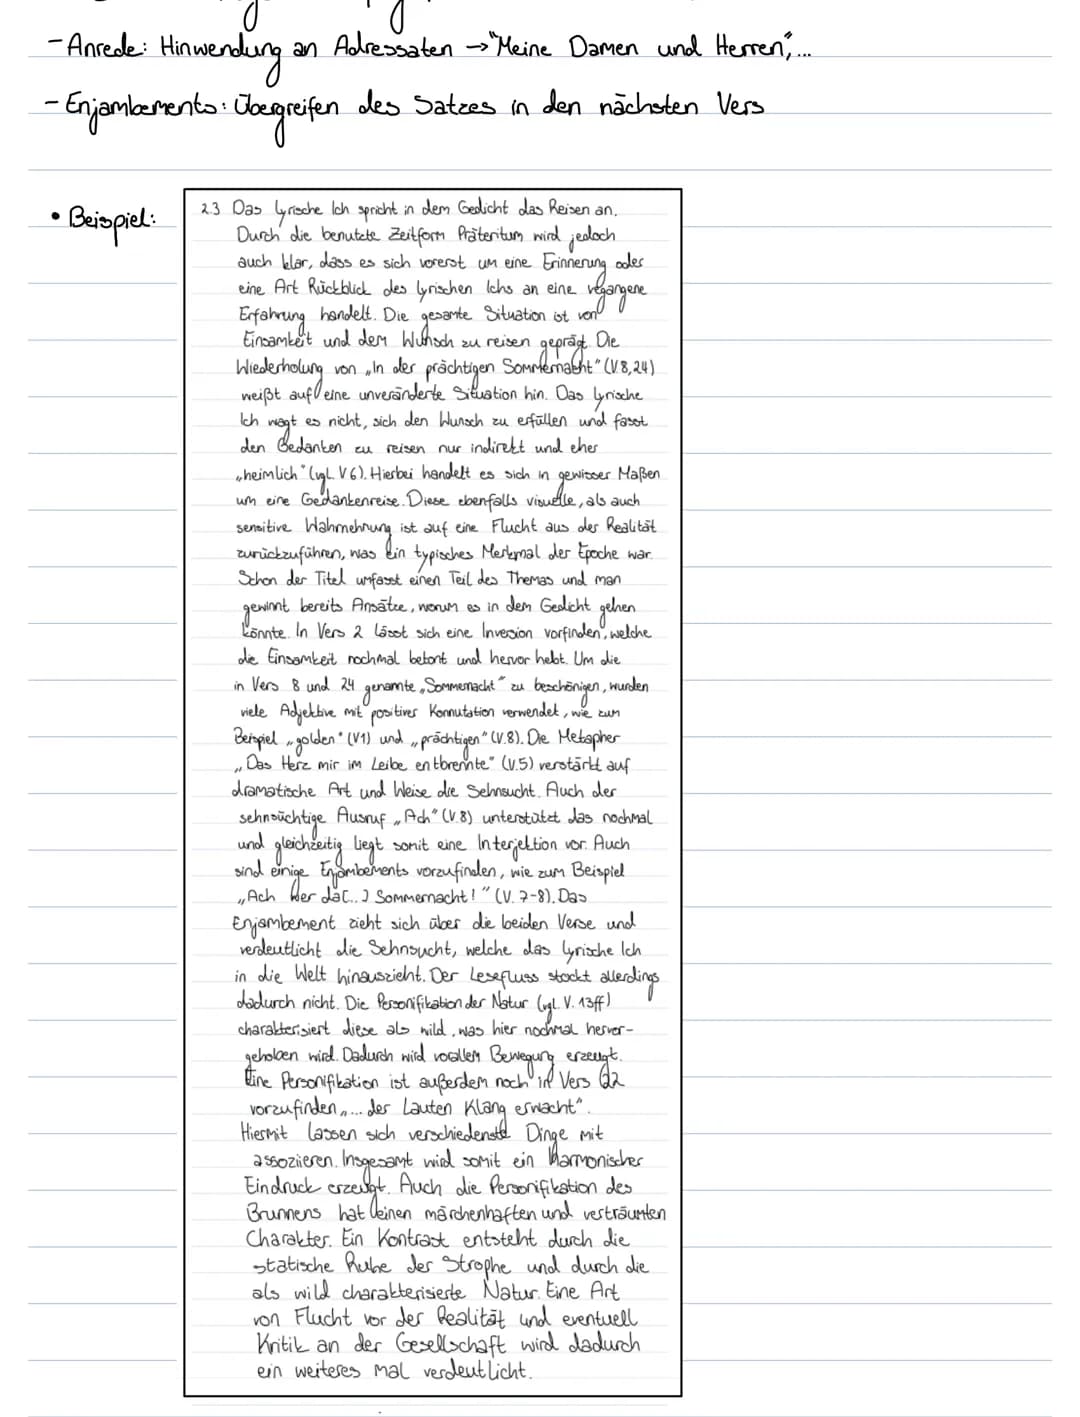 - Anrede: Hinwendung an Adressaten → "Meine Damen und Herren", ...
- Enjambements: Übergreifen des Satzes in den nächsten Vers
• Beispiel:
2.3 Das lyrische Ich spricht in dem Gedicht das Reisen an.
Durch die benutzte Zeitform Präteritum wird jedoch
auch klar, dass es sich vorerst um eine Erinnerung oder
eine Art Rückblick des lyrischen Ichs an eine vegangene
Erfahrung handelt. Die gesamte Situation ist von
Einsamkeit und dem Wunsch zu reisen geprägt. Die
Wiederholung von „In der prächtigen Sommernacht" (V.8,24)
weißt auf eine unveränderte Situation hin. Das lyrische
Ich wagt es nicht, sich den Wunsch zu erfüllen und fasst
den Gedanken zu reisen nur indirekt und eher
„heimlich" (vgl. V6). Hierbei handelt es sich in gewisser Maßen
um eine Gedankenreise. Diese ebenfalls visuelle, als auch
sensitive Wahrnehmung ist auf eine Flucht aus der Realität
zurückzuführen, was ein typisches Merkmal der Epoche war.
Schon der Titel umfasst einen Teil des Themas und man
gewinnt bereits Ansätze, worum es in dem Gedicht gehen
könnte. In Vers 2 lässt sich eine Inversion vorfinden, welche
die Einsamkeit nochmal betont und hervor hebt. Um die
in Vers 8 und 24 genannte „Sommernacht" zu beschönigen, wurden
viele Adjektive mit positiver Konnutation verwendet, wie zum
Beispiel „golden" (V1) und „prächtigen" (V.8). Die Metapher
„Das Herz mir im Leibe entbrennte" (V.5) verstärkt auf
dramatische Art und Weise die Sehnsucht. Auch der
sehnsüchtige Ausruf „Ach" (V.8) unterstützt das nochmal
und gleichzeitig liegt somit eine Interjektion vor. Auch
sind einige Enjambements vorzufinden, wie zum Beispiel
„Ach wer da[...] Sommernacht!" (V. 7-8). Das
Enjambement zieht sich über die beiden Verse und
verdeutlicht die Sehnsucht, welche das lyrische Ich
in die Welt hinauszieht. Der Lesefluss stockt allerdings
dadurch nicht. Die Personifikation der Natur (vgl. V. 13ff)
charakterisiert diese als wild, was hier nochmal hervor-
gehoben wird. Dadurch wird vorallem Bewegung erzeugt.
Eine Personifikation ist außerdem noch in Vers 22
vorzufinden „... der Lauten Klang erwacht".
Hiermit lassen sich verschiedenste Dinge mit
assoziieren. Insgesamt wird somit ein harmonischer
Eindruck erzeugt. Auch die Personifikation des
Brunnens hat einen märchenhaften und verträumten
Charakter. Ein Kontrast entsteht durch die
statische Ruhe der Strophe und durch die
als wild charakterisierte Natur. Eine Art
von Flucht vor der Realität und eventuell
Kritik an der Gesellschaft wird dadurch
ein weiteres mal verdeutlicht.